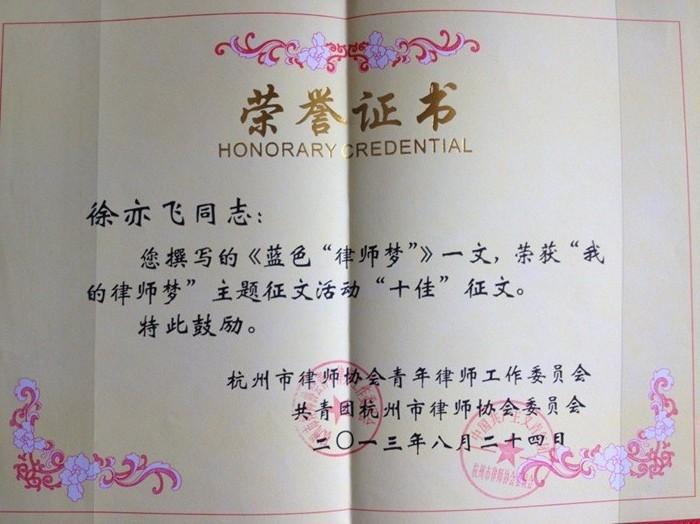 荣誉证书
HONORARY CREDENTIAL
徐亦飞同志：
您撰写的《蓝色“律师梦”》一文，荣获“我
的律师梦”主题征文活动“十佳”征文。
特此鼓励。
杭州市律师协会青年律师工作委员会
共青团杭州市律师协会委员会
二〇一三年八月二十四日
杭州市律师协会委员会